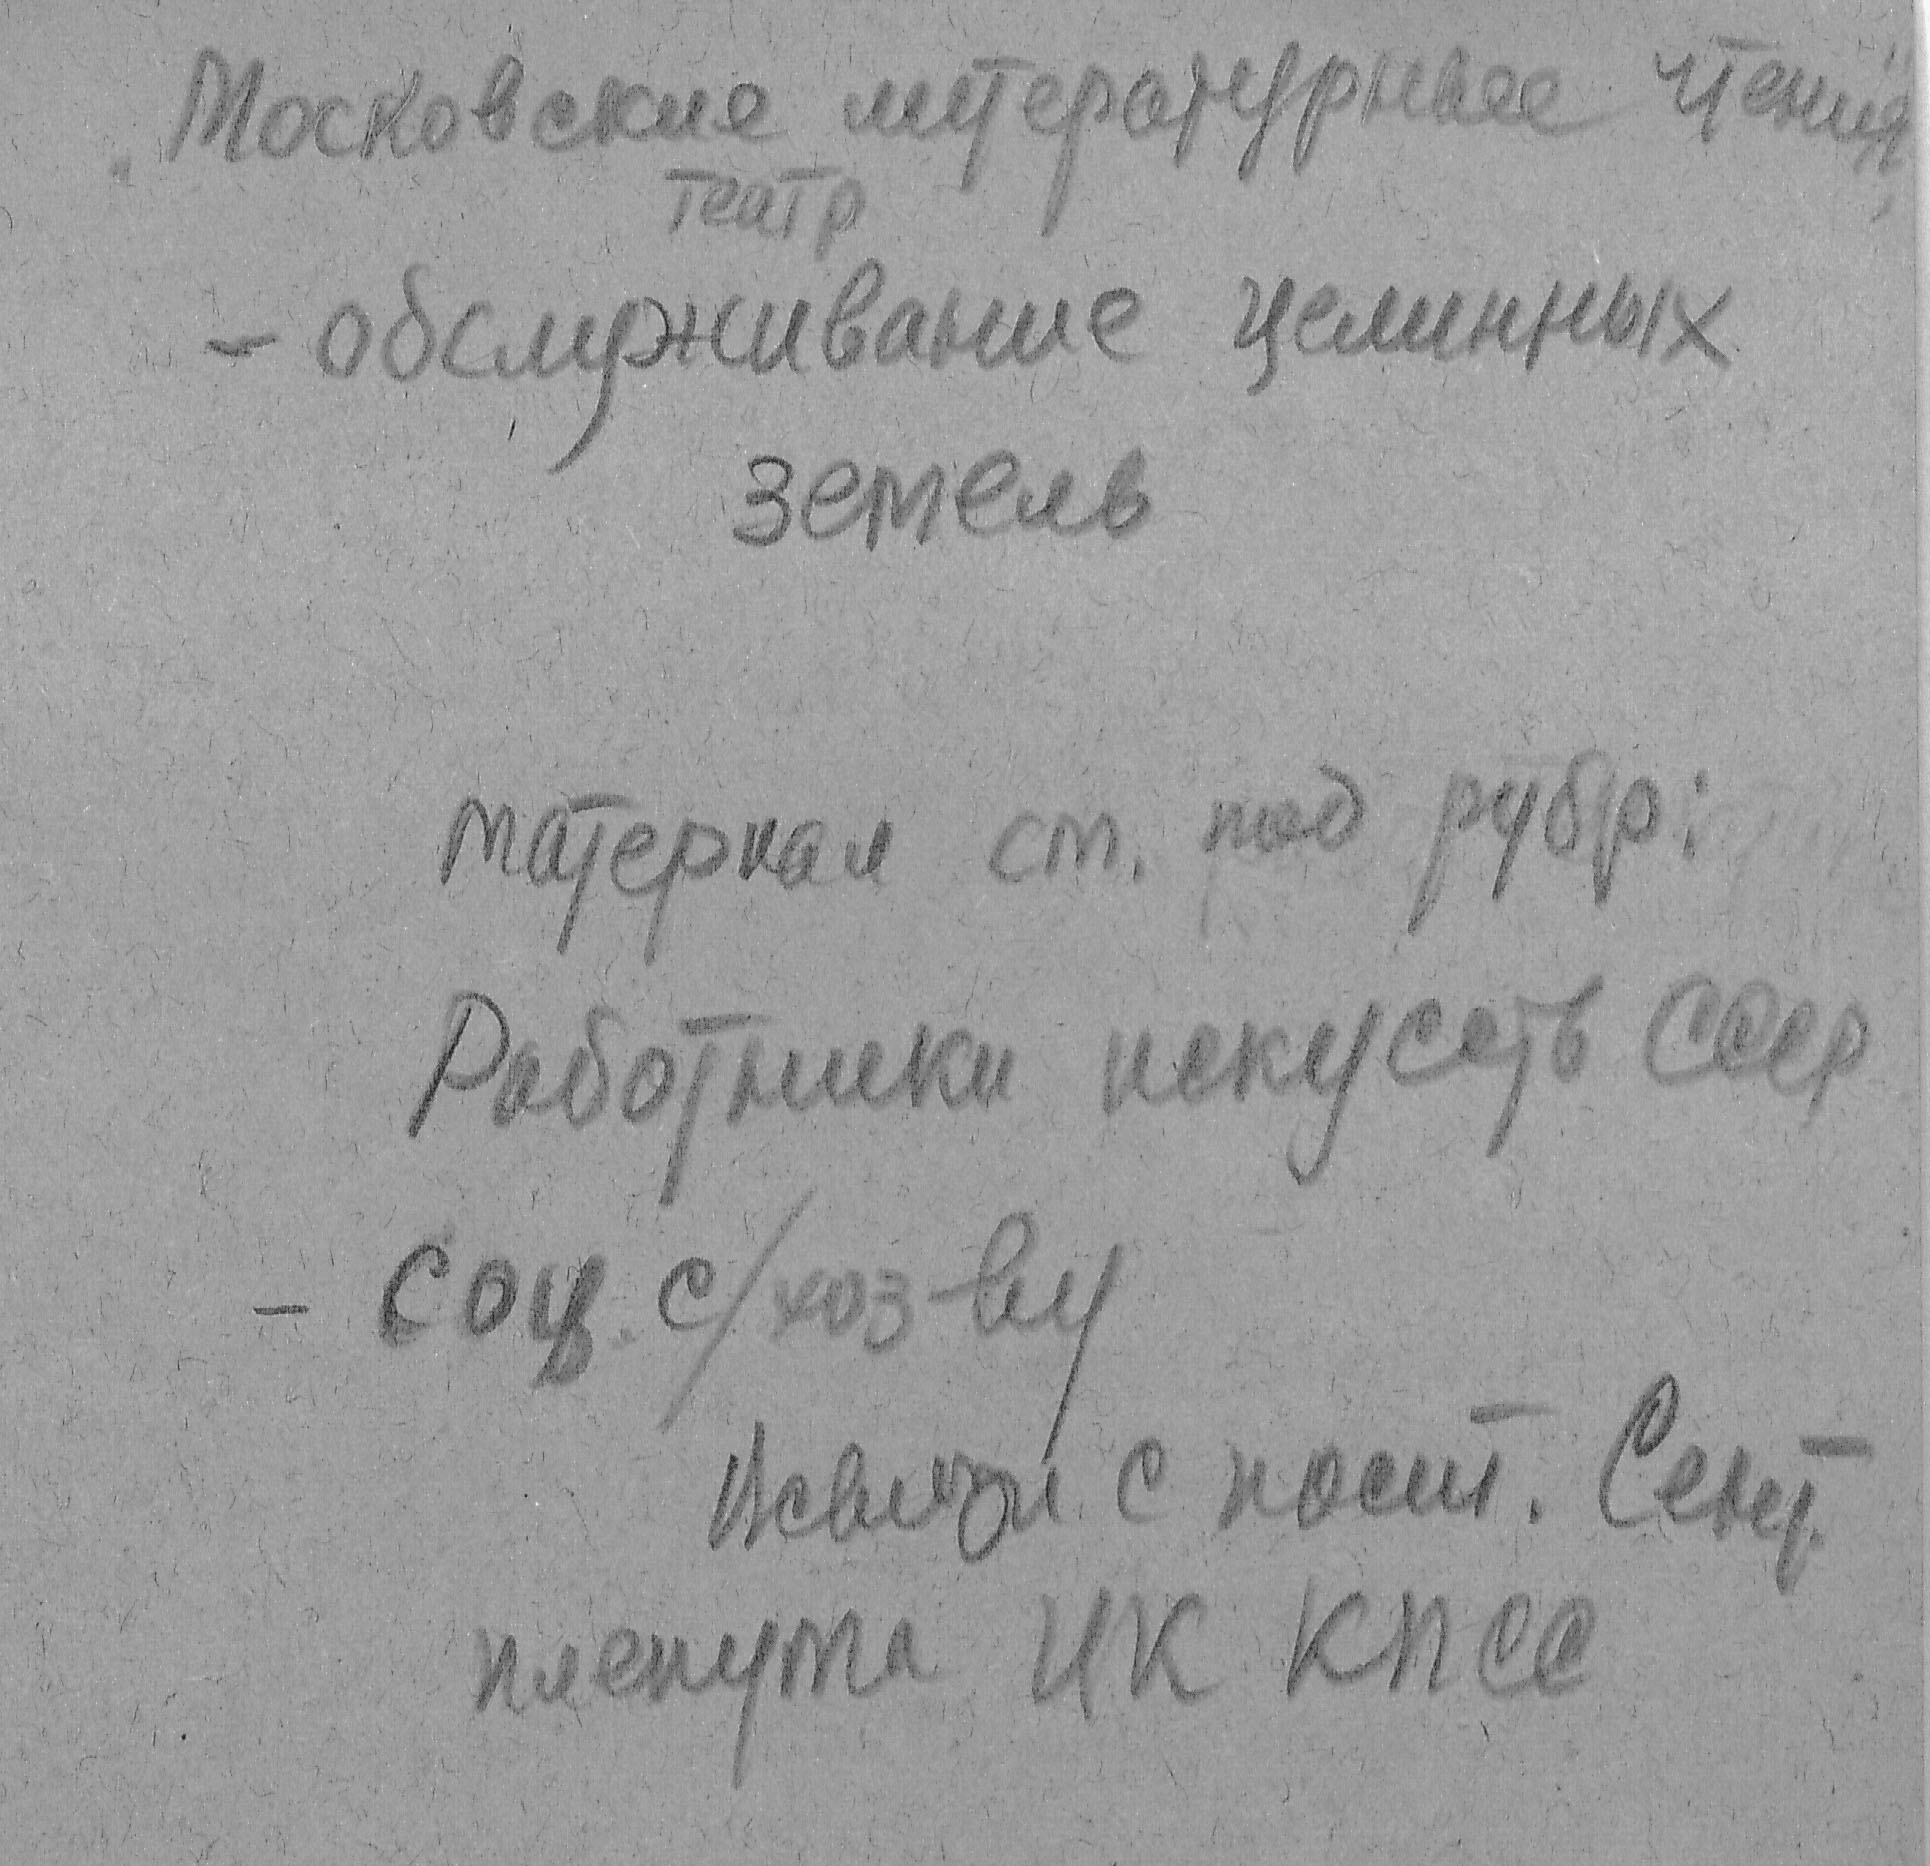 Московские литературные чтения,
театр
- обслуживание целинных
земель
материал см. под рубр:
Работники искусств СССР
- соц. с/хоз-ву
с пост. Сент.
пленума ЦК КПСС